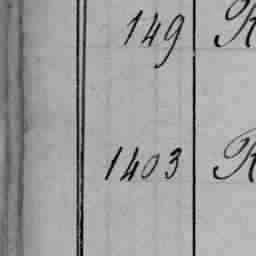 149 R
1403 R